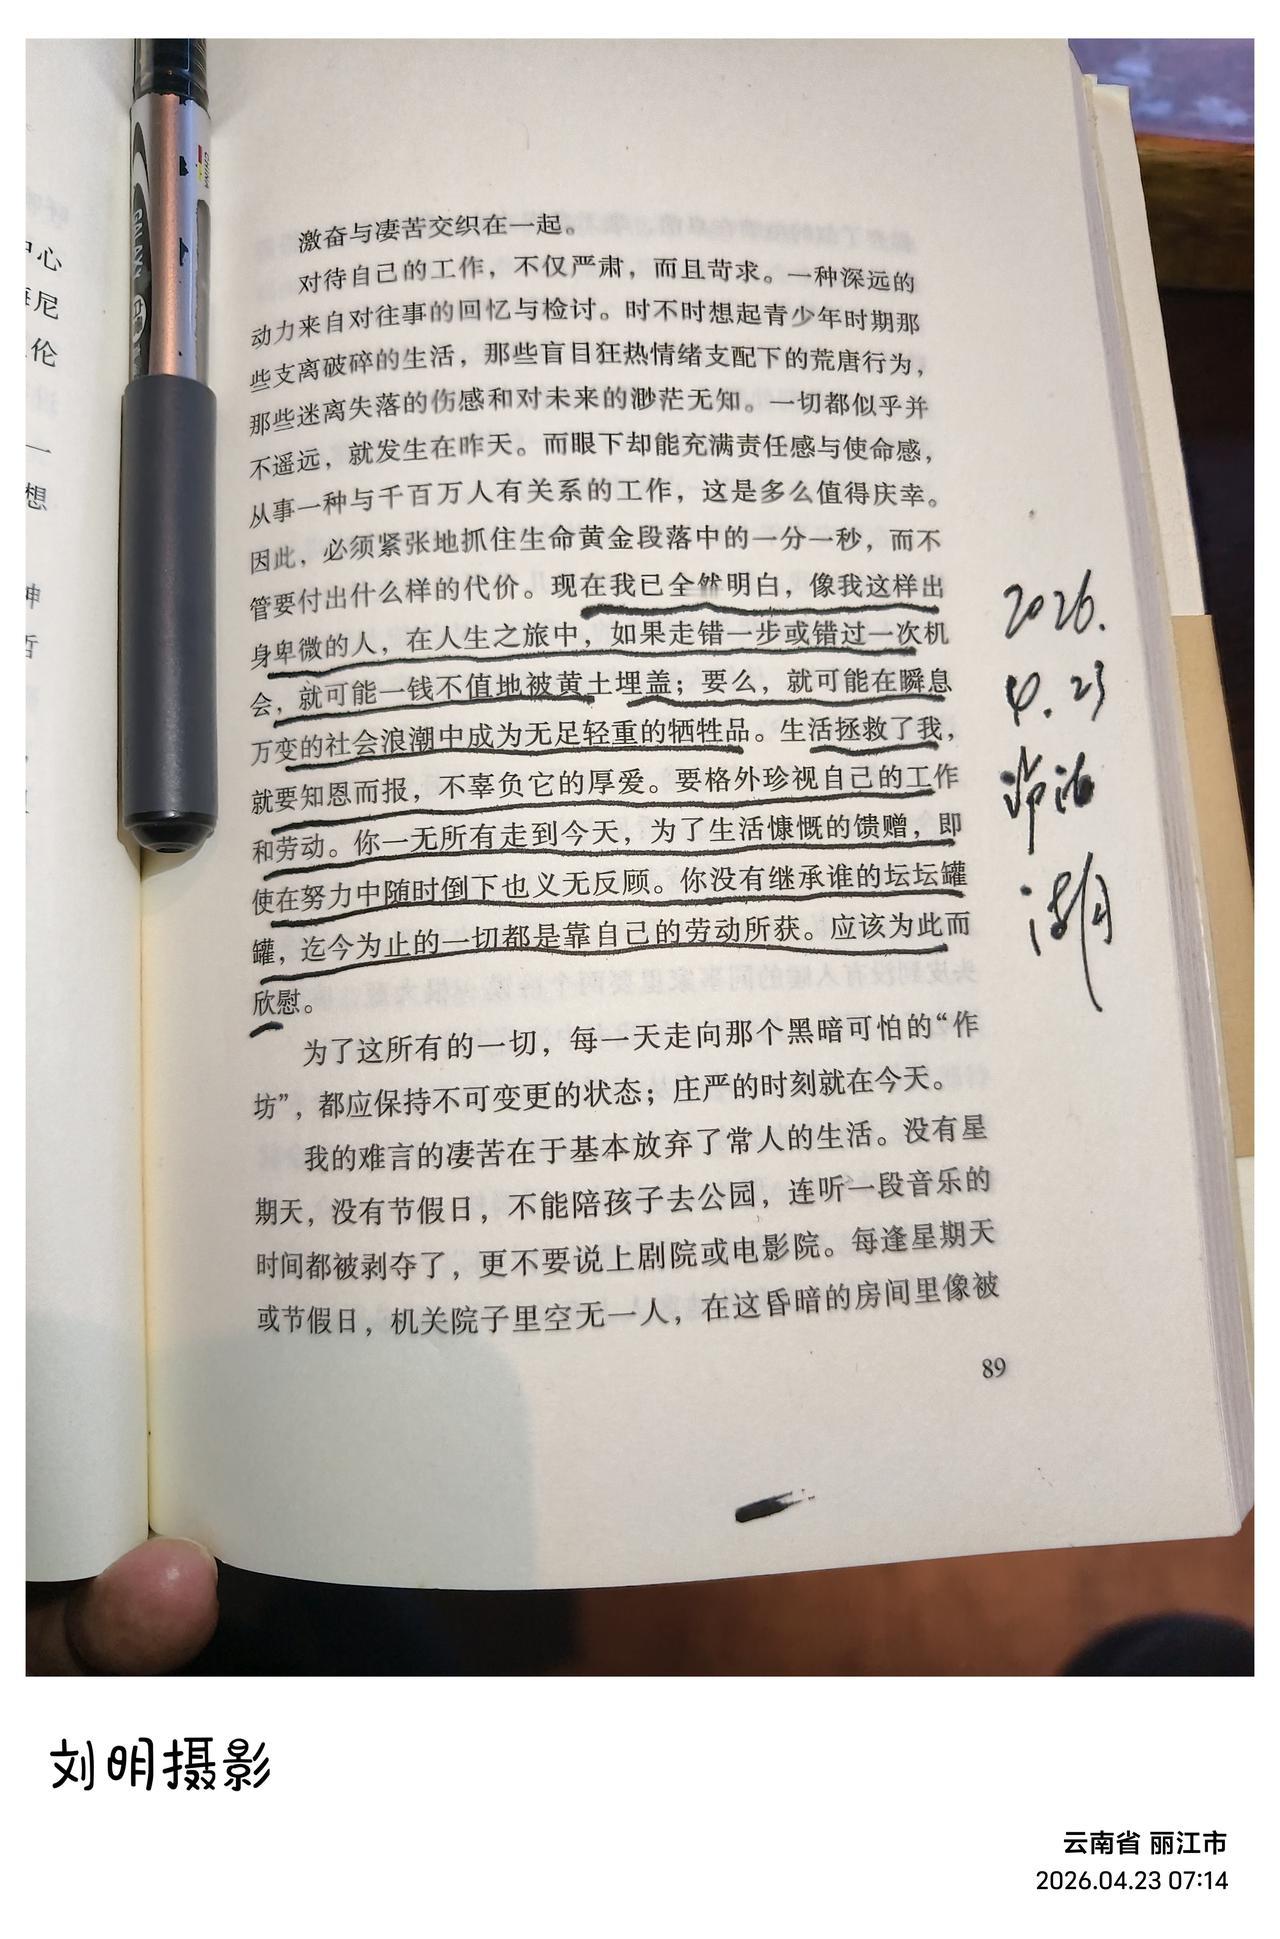 中心
海尼
伦
一
想
神
哲
CHINA
激奋与凄苦交织在一起。
对待自己的工作，不仅严肃，而且苛求。一种深远的
动力来自对往事的回忆与检讨。时不时想起青少年时期那
些支离破碎的生活，那些盲目狂热情绪支配下的荒唐行为，
那些迷离失落的伤感和对未来的渺茫无知。一切都似乎并
不遥远，就发生在昨天。而眼下却能充满责任感与使命感，
从事一种与千百万人有关系的工作，这是多么值得庆幸。
因此，必须紧张地抓住生命黄金段落中的一分一秒，而不
管要付出什么样的代价。现在我已全然明白，像我这样出
身卑微的人，在人生之旅中，如果走错一步或错过一次机
会，就可能一钱不值地被黄土埋盖；要么，就可能在瞬息
万变的社会浪潮中成为无足轻重的牺牲品。生活拯救了我，
就要知恩而报，不辜负它的厚爱。要格外珍视自己的工作
和劳动。你一无所有走到今天，为了生活慷慨的馈赠，即
使在努力中随时倒下也义无反顾。你没有继承谁的坛坛罐
罐，迄今为止的一切都是靠自己的劳动所获。应该为此而
欣慰。
为了这所有的一切，每一天走向那个黑暗可怕的“作
坊”，都应保持不可变更的状态；庄严的时刻就在今天。
我的难言的凄苦在于基本放弃了常人的生活。没有星
期天，没有节假日，不能陪孩子去公园，连听一段音乐的
时间都被剥夺了，更不要说上剧院或电影院。每逢星期天
或节假日，机关院子里空无一人，在这昏暗的房间里像被
89
2026.
4.23
泸沽
湖
刘明摄影
云南省 丽江市
2026.04.23 07:14